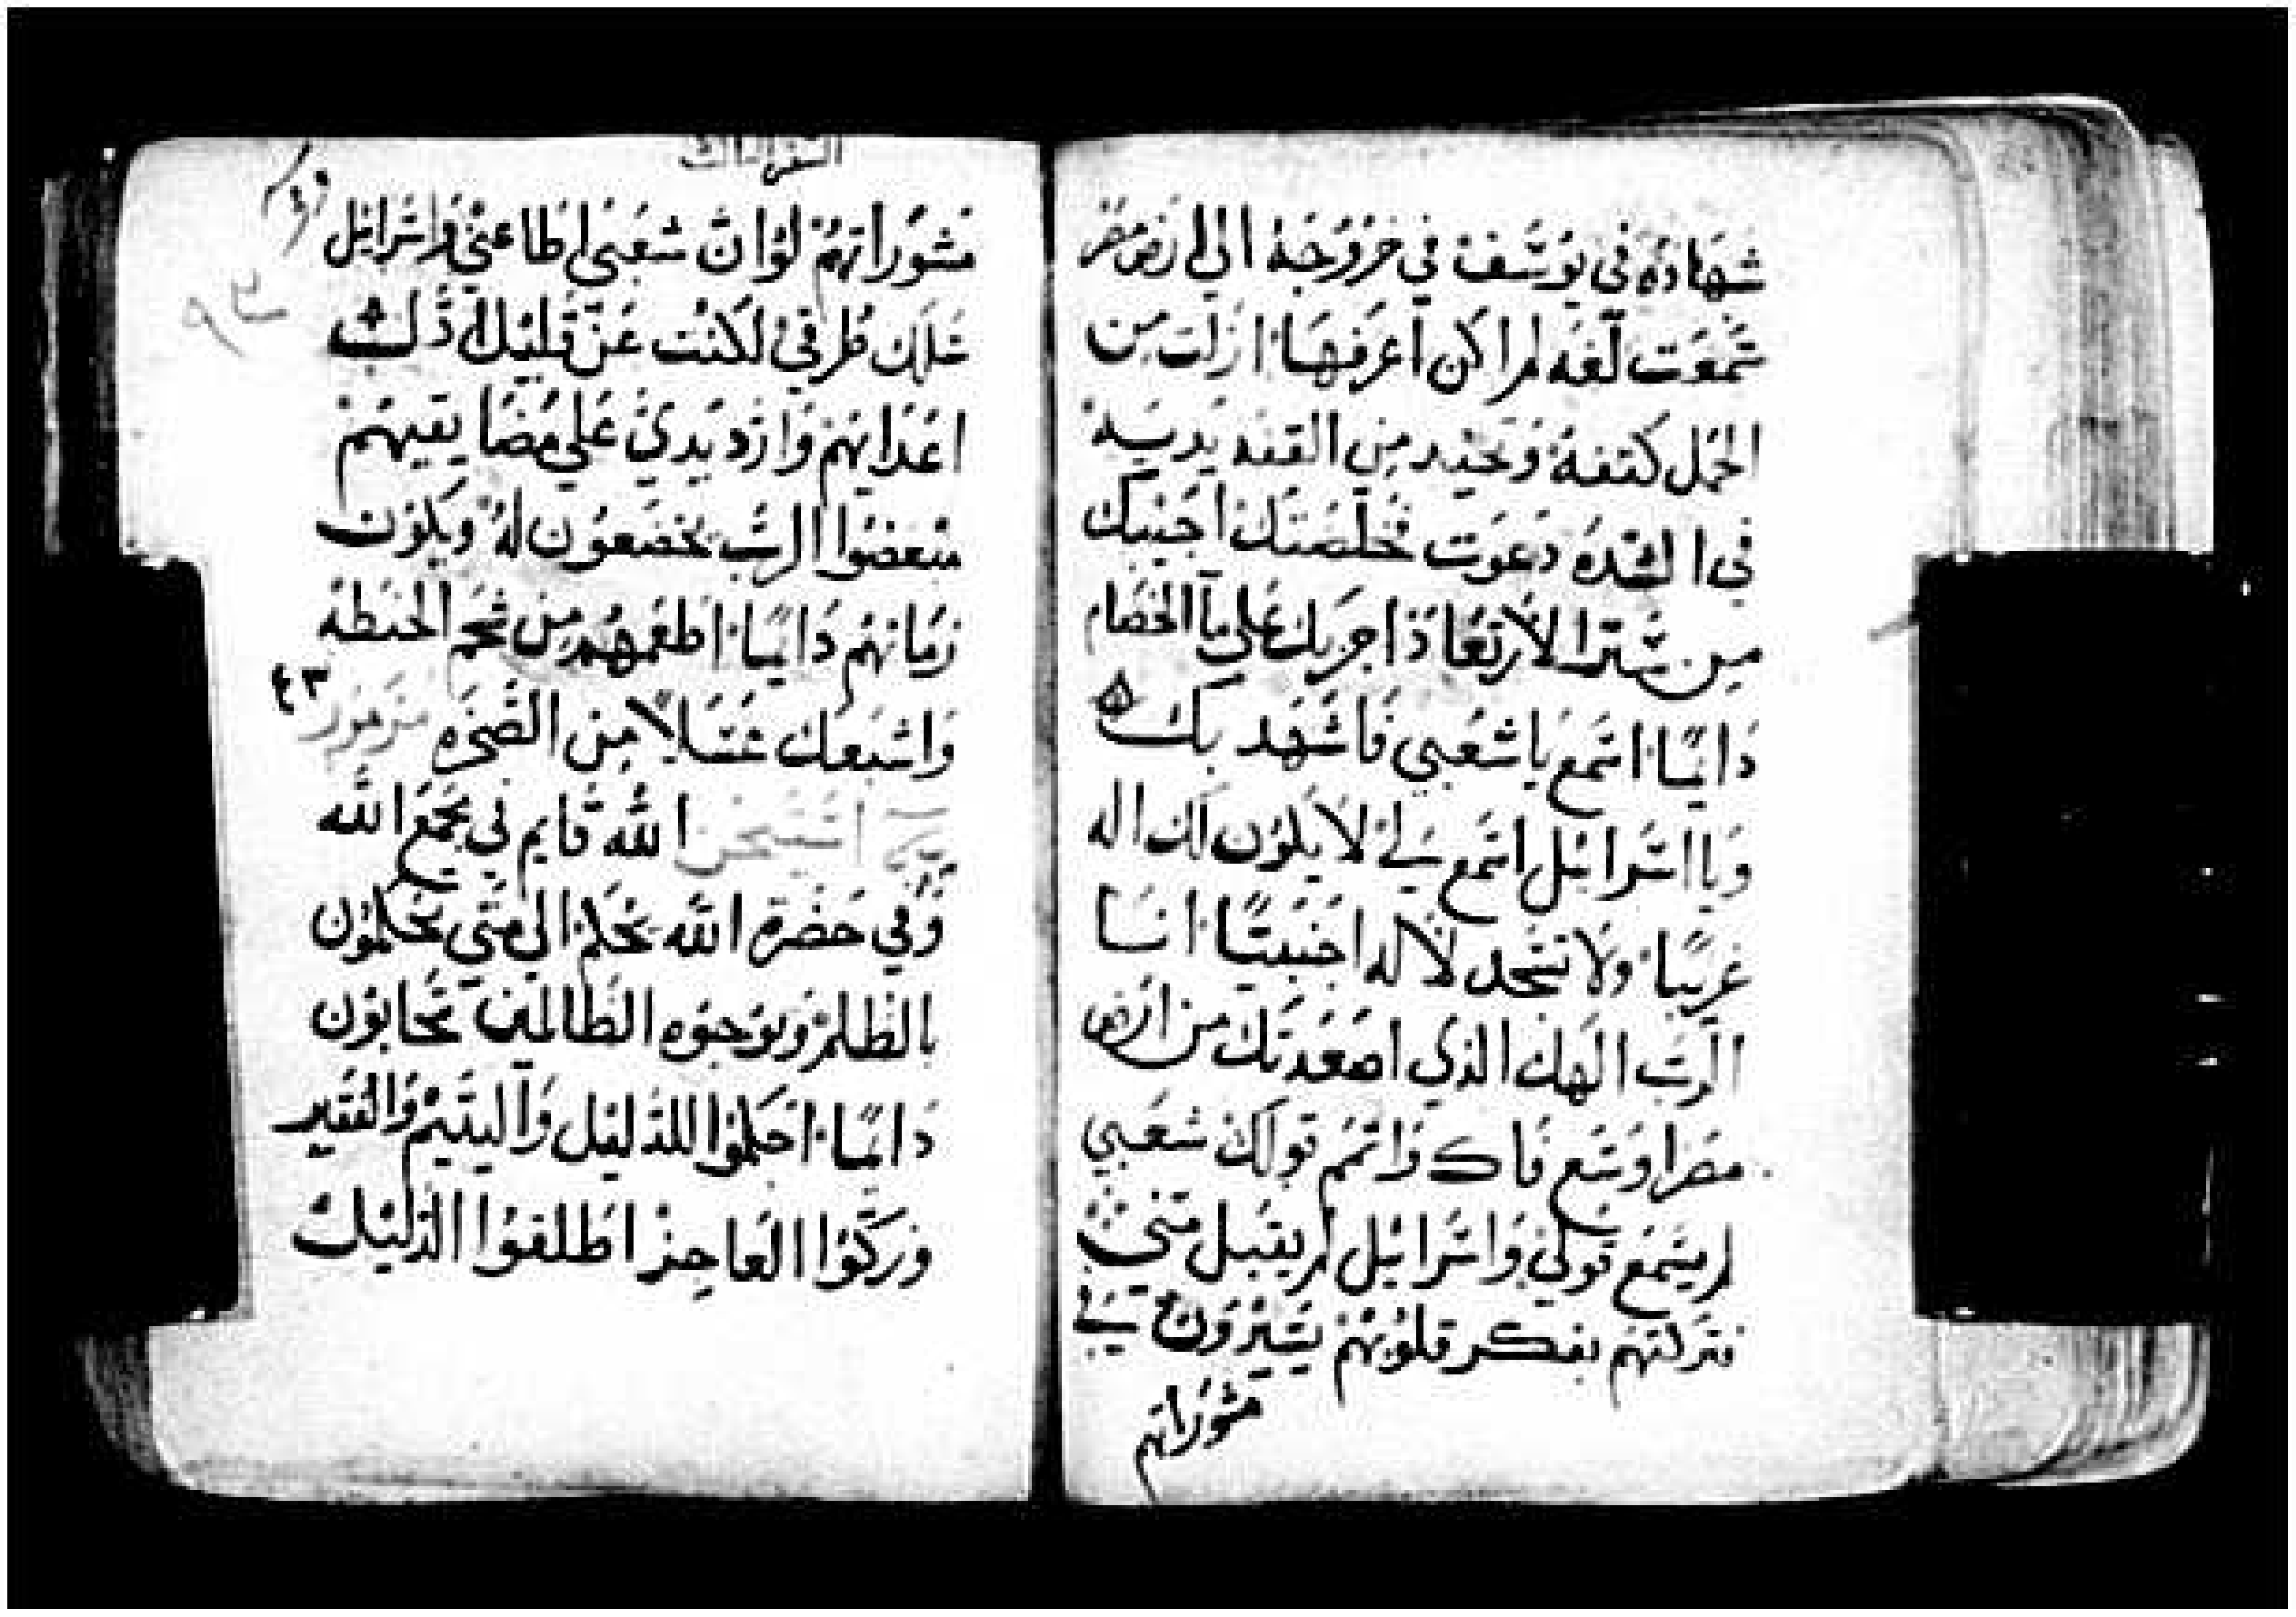 شهاده في يوسف في خروجه الى ارض مصر
سمعت لغه لم اكن اعرفها ازلت من
الحمل كتفه وتحيد من القفه يديه
في الشده دعوت فخلصتك اجيبك
من ستر الارتعاد اجربك على ما الخصام
دايمًا اسمع يا شعبي فاشهد بك
ويا اسرائيل اسمع لي لا يكون لك اله
غريبًا ولا تسجد لاله اجنبيًا انا
الرب الهك الذي اصعدتك من ارض
مصر اوسع فاك واتمم قولك شعبي
لم يسمع قولي واسرائيل لم يقبل مني
فتركتهم بفكر قلوبهم يسيرون في
مشوراتهم
السفر الثالث
مشوراتهم لو ان شعبي اطاعني واسرائيل
سلك طرقي لكنت عن قليل اذل
اعدايهم وارد يدي على مضايقيهم
مبغضوا الرب يخضعون له ويكون
زمانهم دايمًا اطعمهم من شحم الحنطه
واشبعك عسلا من الصخره مزمور
٤٣
الله قايم في مجمع الله
وفي حضرة الله يحكم الى متى تحكمون
بالظلم وبوجوه الظالمين تحابون
دايمًا احكموا للذليل واليتيم والفقير
وزكوا العاجز اطلقوا الذليل